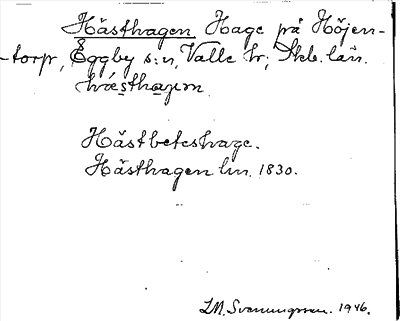 Hästhagen Hage på Höjen-
-torp, Eggby s:n, Valle hr; Skb. län.
hǽsthaɡən
Hästbeteshage.
Hästhagen lm. 1830.
LM. Svanungsson. 1946.